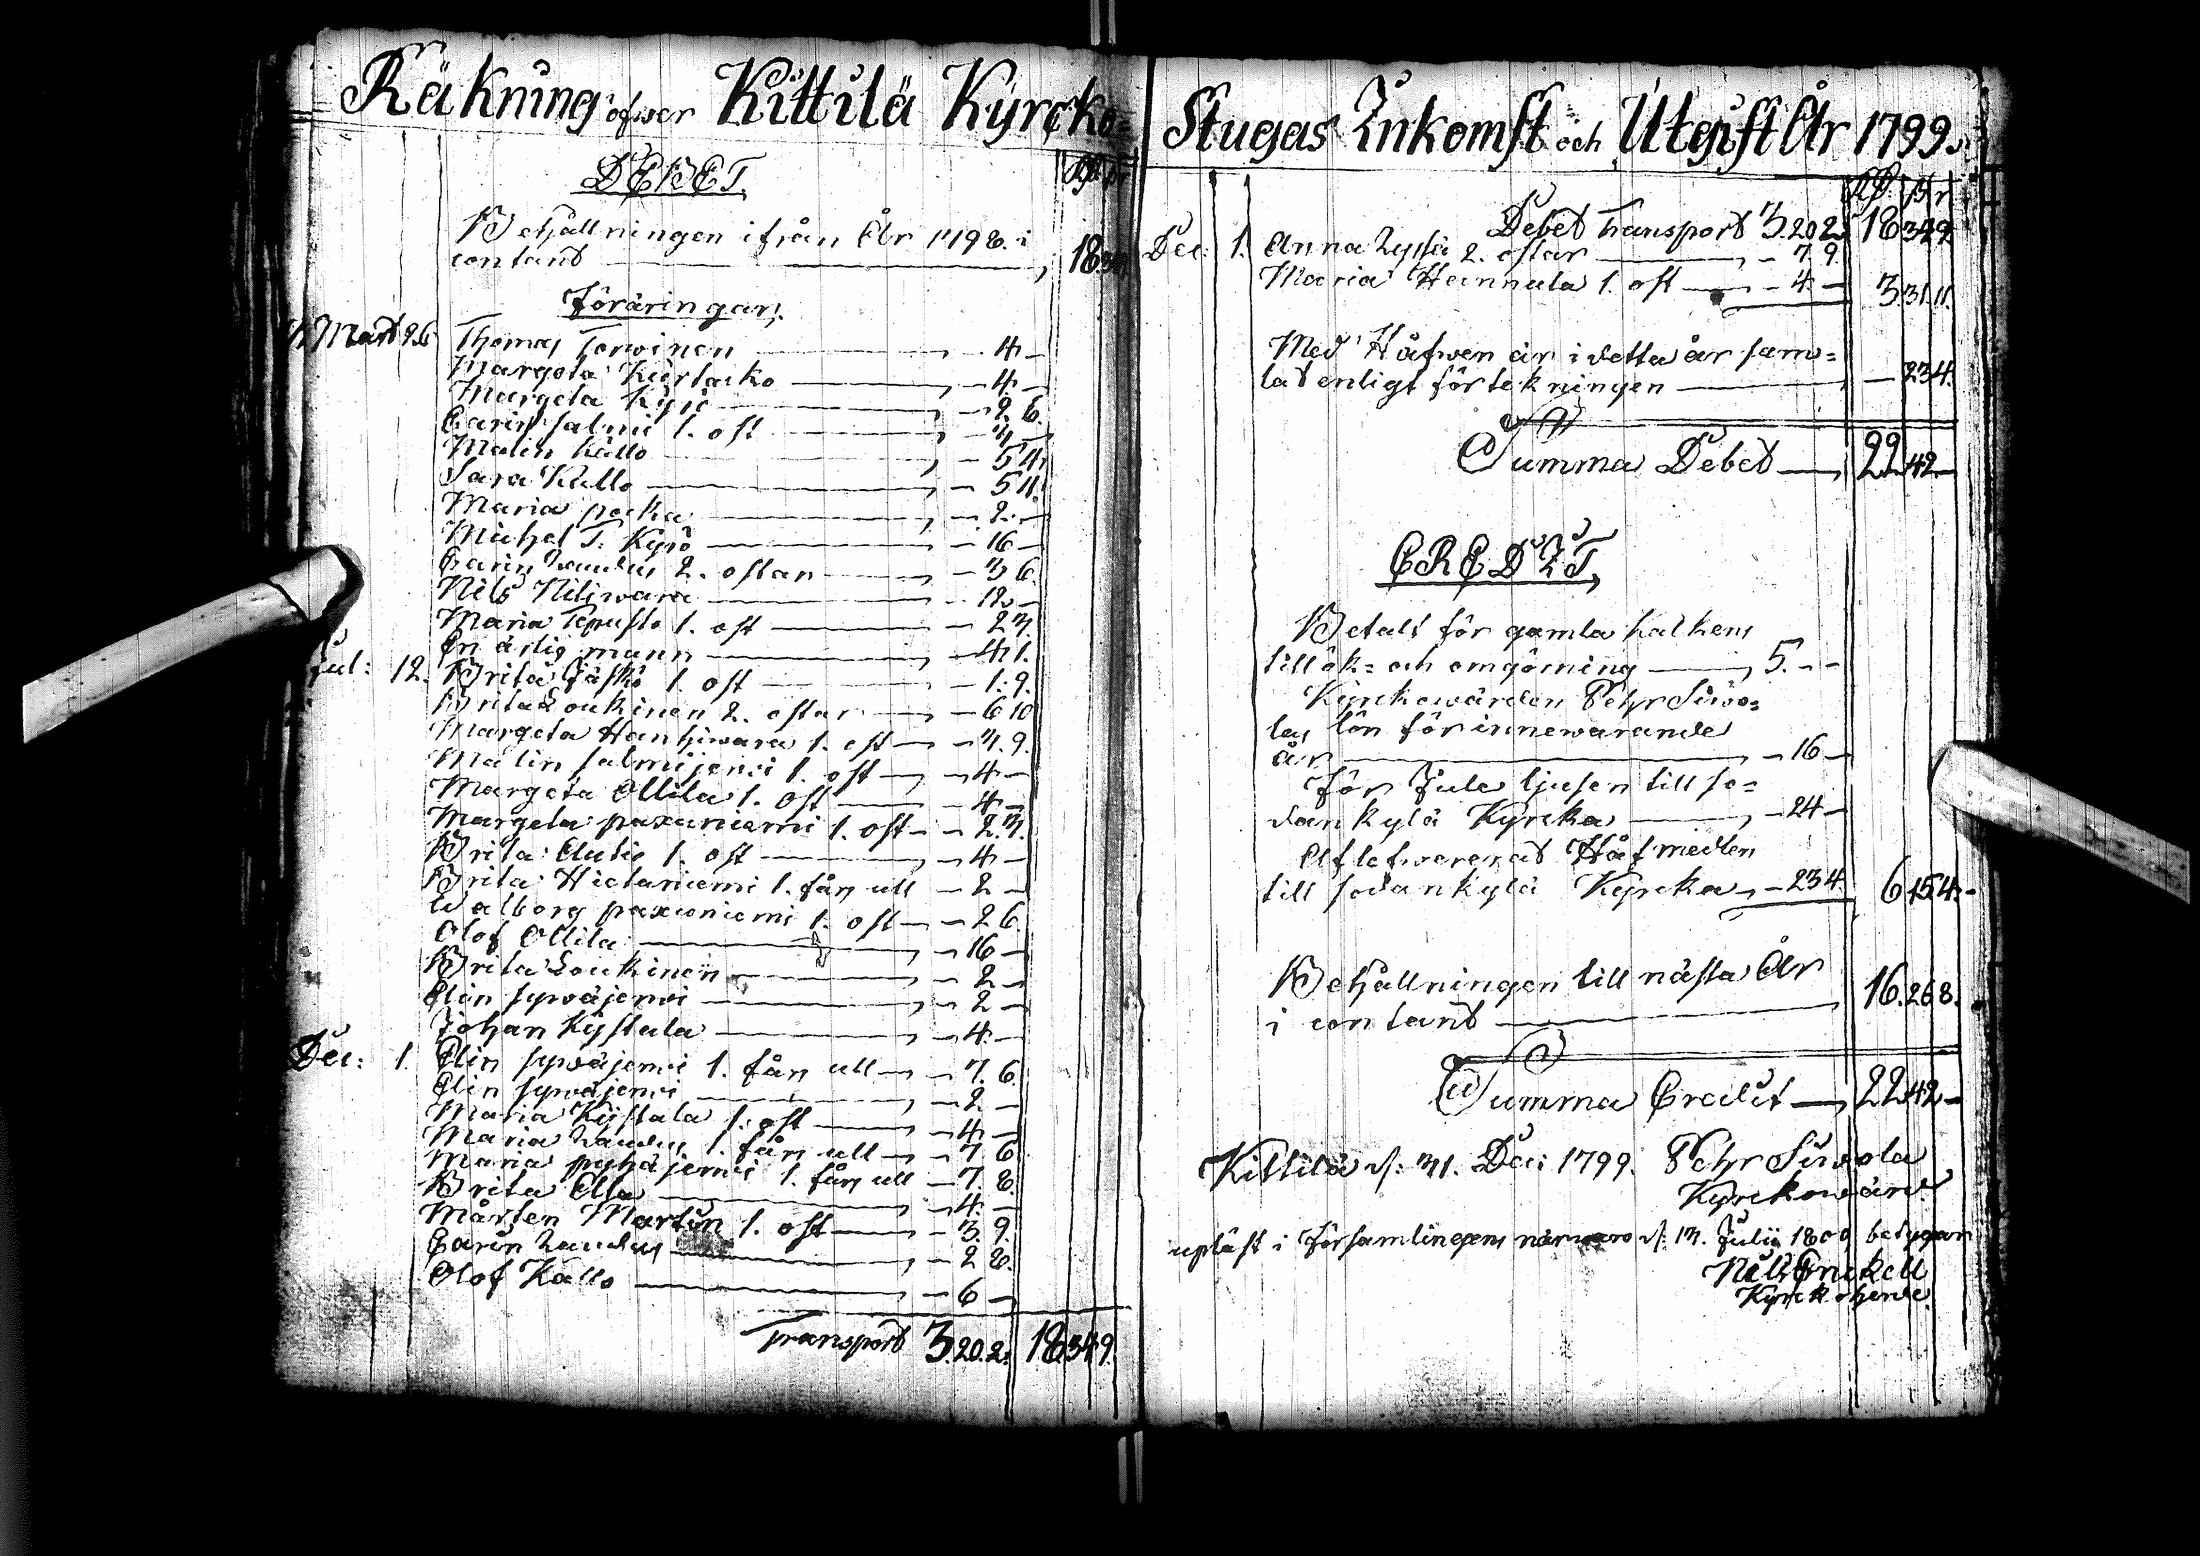 Räkning öfwer Kittilä Kyrcko=
DEBET
Behållningen ifrån År 1798. i
contant — 18 34 9
Föräringar.
Mart 26 Thomas Torwinen — 4 —
Margeta Kiertasko — 4 —
Margeta Kyrö — 2 6.
Carin Salmi 1. ost — 3 —
Malin Kallo — 5 4.
Sara Kallo — 5 11.
Maria pocka — 2 —
Michel T. Kyrö — 16 —
Carin Zaudus 2. ostar — 3 6.
Nils Niliwara — 12 —
Maria Tepusto 1. ost — 2 3.
En ärlig mann — 4 1.
Jul: 12. Brita Jäskö 1. ost — 1. 9.
Brita Loukinen 2. ostar — 6 10
Margeta Hanhiwara 1. ost — 3. 9.
Malin salmijerwi 1. ost — 4 —
Margeta Ollila 1. ost — 4 —
Margeta paxuniemi 1. ost — 2. 3.
Brita Autio 1. ost — 4 —
Brita Hietaniemi 1. fårs ull — 2 —
Walborg paxuniemi 1. ost — 2 6.
Olof Ollila — 16 —
Brita Loukinen — 2 —
Elin sywäjerwi — 2 —
Johan Kystala — 4 —
Dec: 1. Elin sywäjerwi 1. fårs ull — 7. 6.
Elin sywäjerwi — 2 —
Maria Kystala 1. ost — 4 —
Maria Zaudus 1. fårs ull — 7 6
Maria pyhäjerwi 1. fårs ull — 7. 8.
Brita Olla — 4 —
Mårten Martin 1. ost — 3. 9.
Carin Zaudus — 2 8.
Olof Kallo — 6 —
Transport 3. 20. 2. 18 34 9.
Stugas Inkomst och Utgift År 1799.
Debet Transport 3. 20 2 18 34 9
Dec: 1. Anna Zyssä 2. ostar — 7. 9.
Maria Hannula 1. ost — 4 — 3 31. 11.
Med Håfwen är i detta år sam=
lad enligt förtekningen — 23 4.
Summa Debet — 22 42 —
CREDIT
Betalt för gamla kalkens
tillök= och omgörning — 5. — —
Kyrckowärden Pehr Siwo=
las lön för innewarande
år — 16 —
För Jule ljusen till so=
dankylä Kyrcka — 24 —
Aflefwererat Håfmedlen
till sodankylä Kyrcka — 23 4. 6 15 4.
Behållningen till nästa År
i contant — 16. 26 8.
Summa Credit — 22 42 —
Kittilä d. 31. Dec: 1799. Pehr Siwola
Kyrckowärd
upläst i Församlingens närwaro d. 13. Julii 1800 betygar
Nils Fnickell
Kyrckoherde.